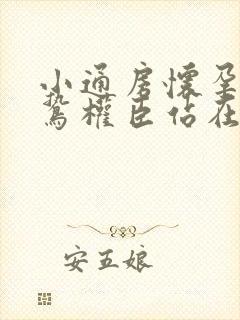 小通房懷孕
鷙權臣佔在
安五娘